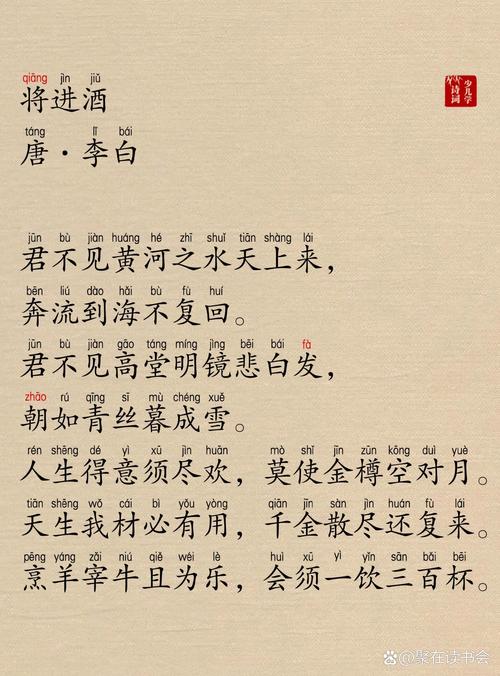 qiāng jìn jiǔ
将进酒
少儿学
诗词
táng lǐ bái
唐·李白
jūn bù jiàn huáng hé zhī shuǐ tiān shàng lái
君不见黄河之水天上来，
bēn liú dào hǎi bù fù huí
奔流到海不复回。
jūn bù jiàn gāo táng míng jìng bēi bái fà
君不见高堂明镜悲白发，
zhāo rú qīng sī mù chéng xuě
朝如青丝暮成雪。
rén shēng dé yì xū jìn huān mò shǐ jīn zūn kōng duì yuè
人生得意须尽欢，莫使金樽空对月。
tiān shēng wǒ cái bì yǒu yòng qiān jīn sàn jìn huán fù lái
天生我材必有用，千金散尽还复来。
pēng yáng zǎi niú qiě wéi lè huì xū yì yǐn sān bǎi bēi
烹羊宰牛且为乐，会须一饮三百杯。
聚在读书会